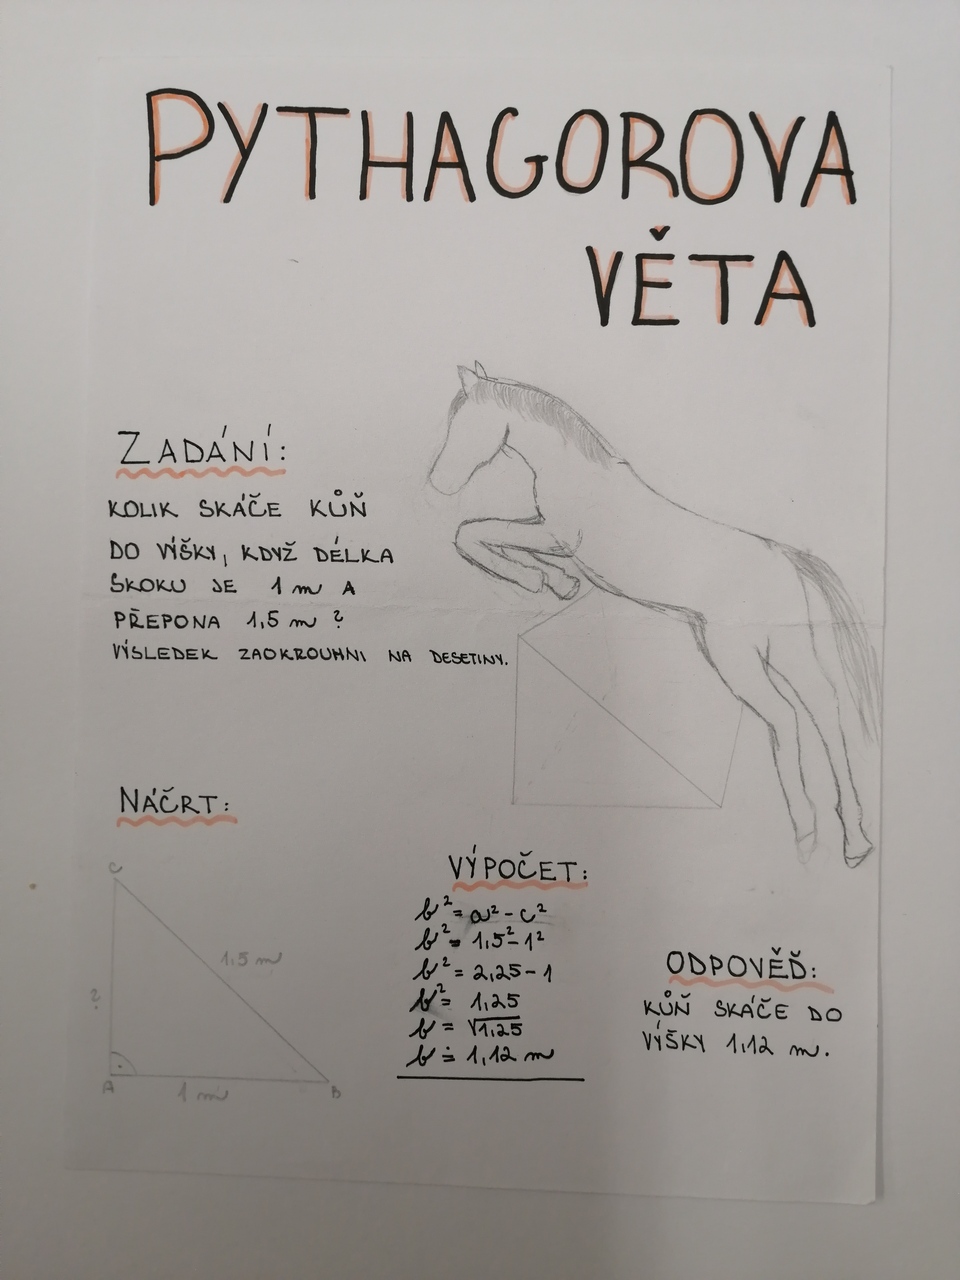 PYTHAGOROVA
VĚTA
ZADÁNÍ:
KOLIK SKÁČE KŮŇ
DO VÝŠKY, KDYŽ DÉLKA
SKOKU JE 1 m A
PŘEPONA 1,5 m ?
VÝSLEDEK ZAOKROUHNI NA DESETINY.
NÁČRT:
C
1,5 m
?
A
1 m
B
VÝPOČET:
b² = a² - c²
b² = 1,5² - 1²
b² = 2,25 - 1
b² = 1,25
b = √1,25
b ≐ 1,12 m
ODPOVĚĎ:
KŮŇ SKÁČE DO
VÝŠKY 1,12 m.